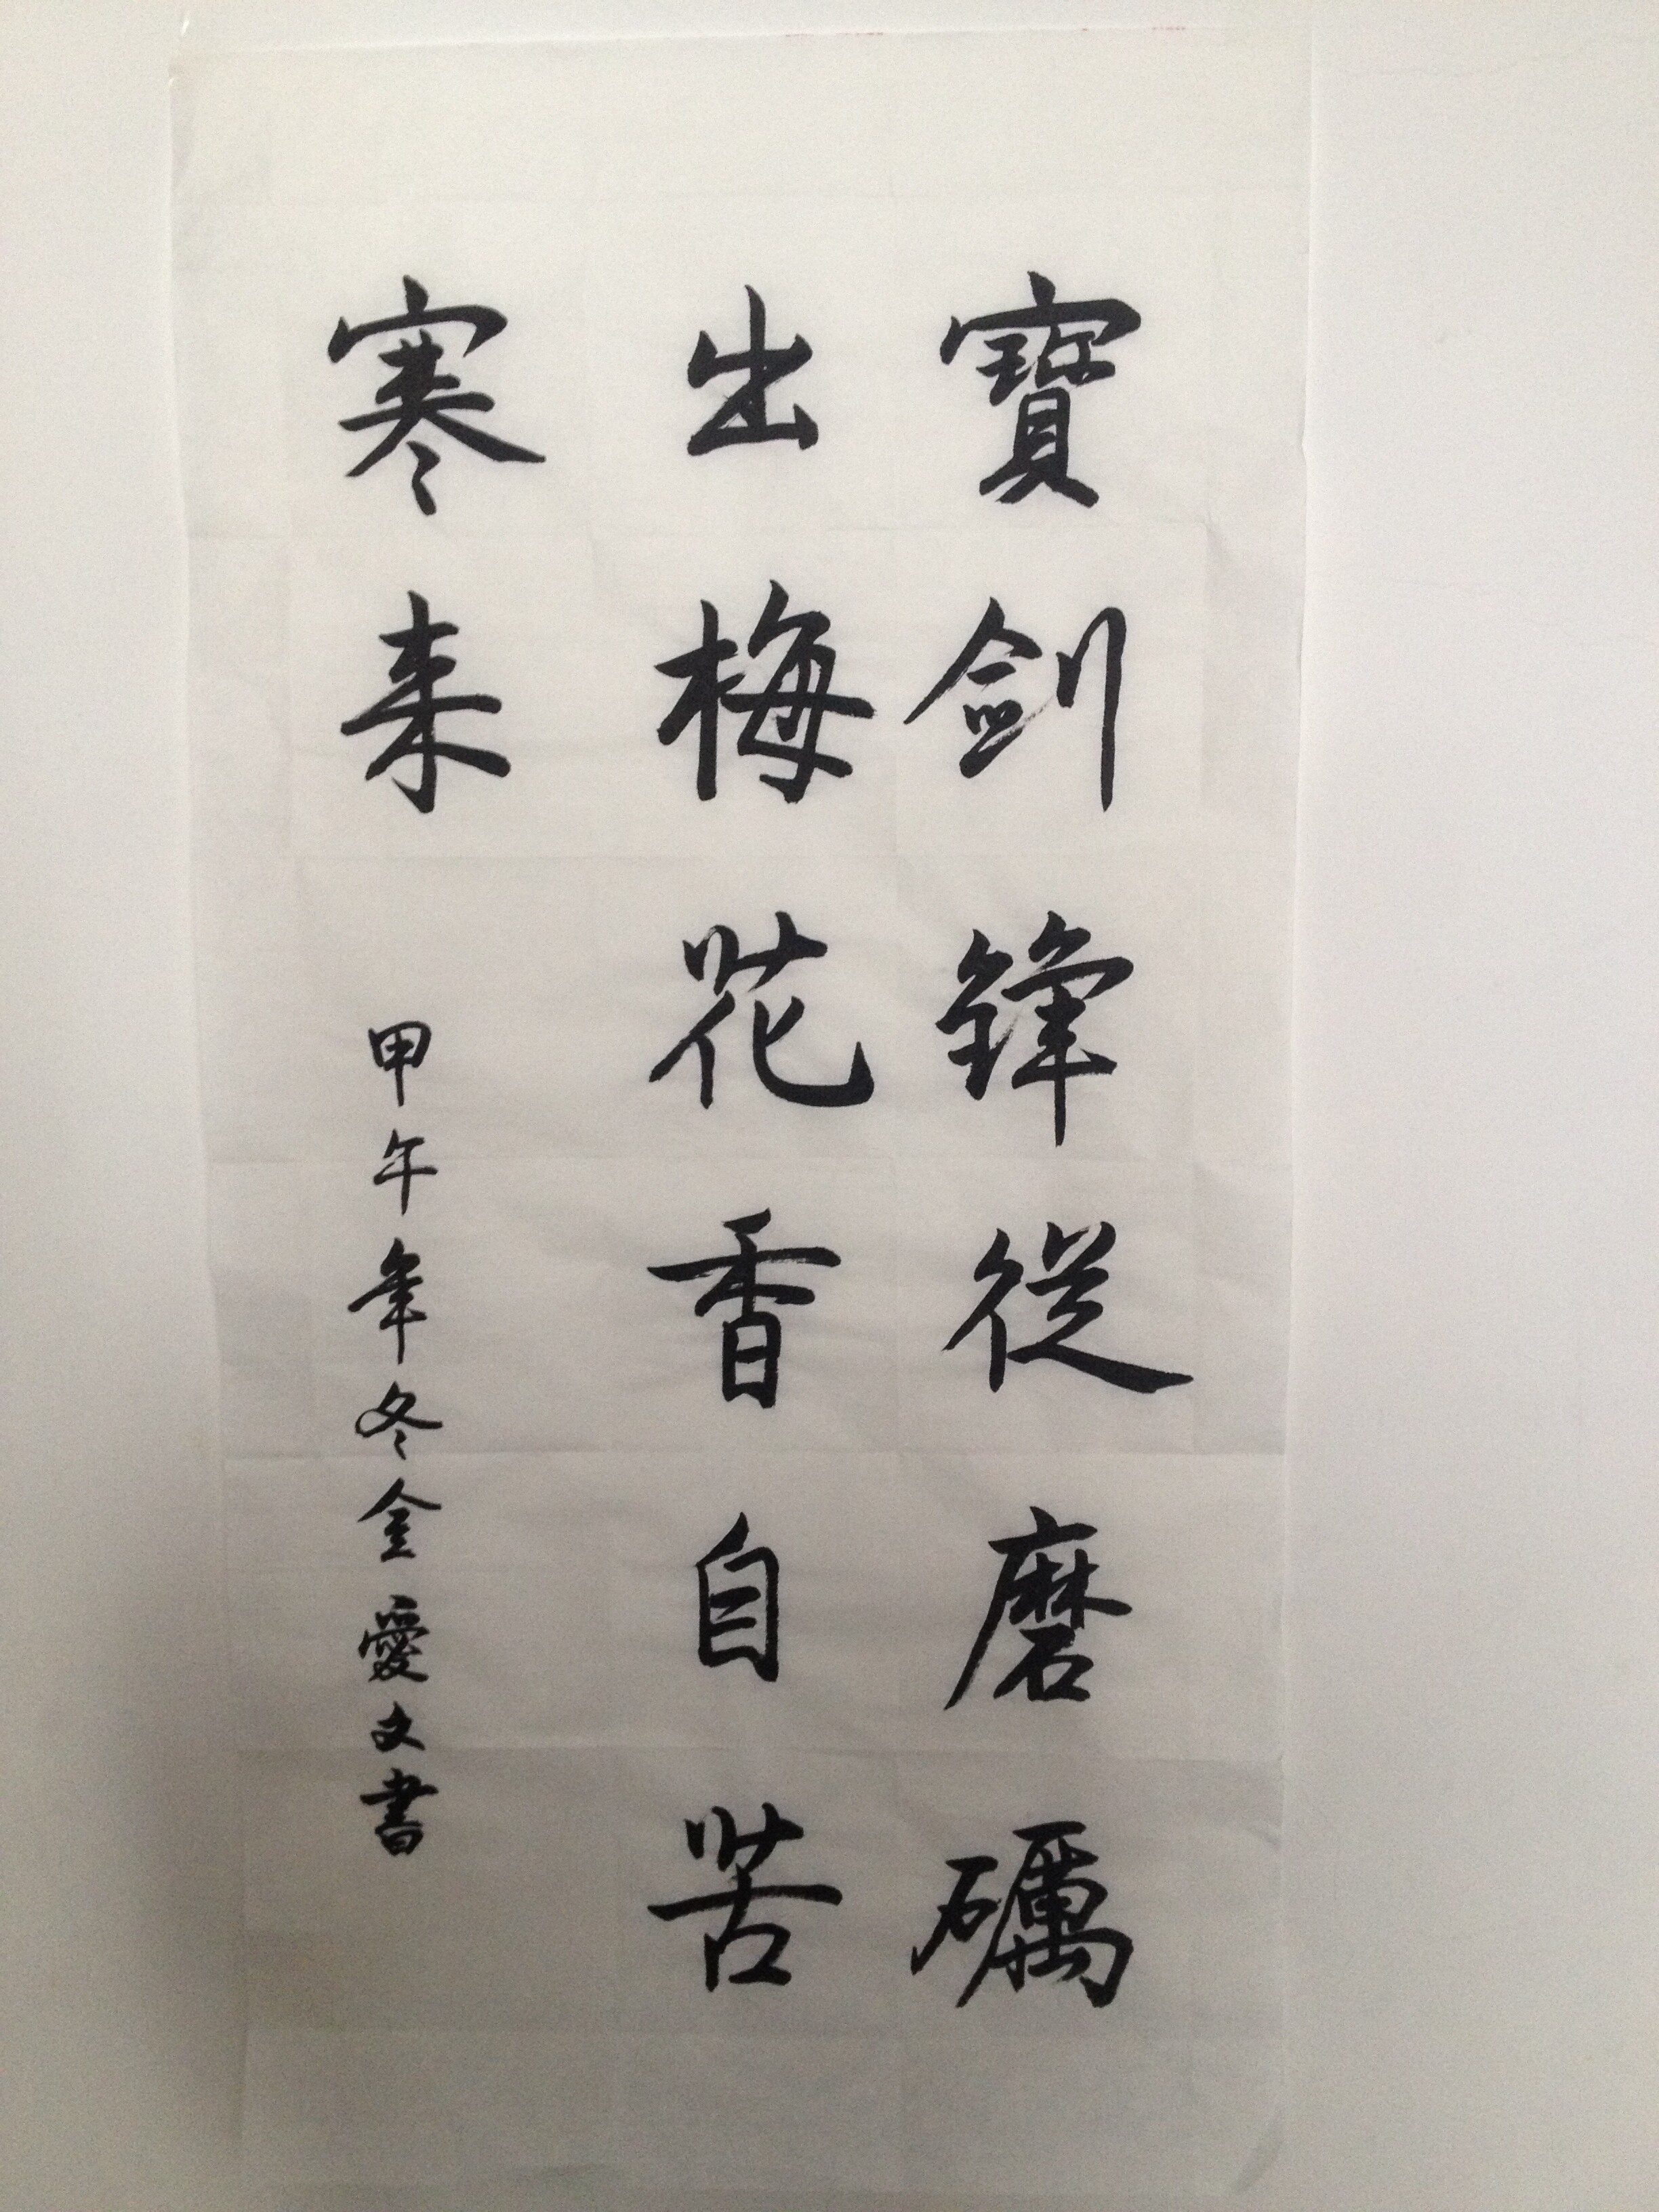 寶劍鋒從磨礪
出梅花香自苦
寒来
甲午年冬金愛文書